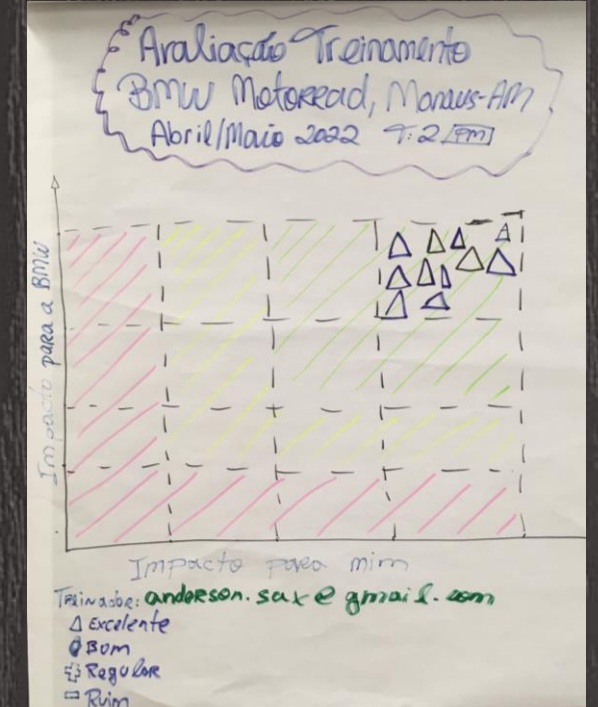 Avaliação Treinamento
BMW Motorrad, Manaus-AM
Abril/Maio 2022 T:2 PM
Impacto para a BMW
Impacto para mim
Treinador: anderson.sax@gmail.com
Excelente
Bom
Regular
Ruim